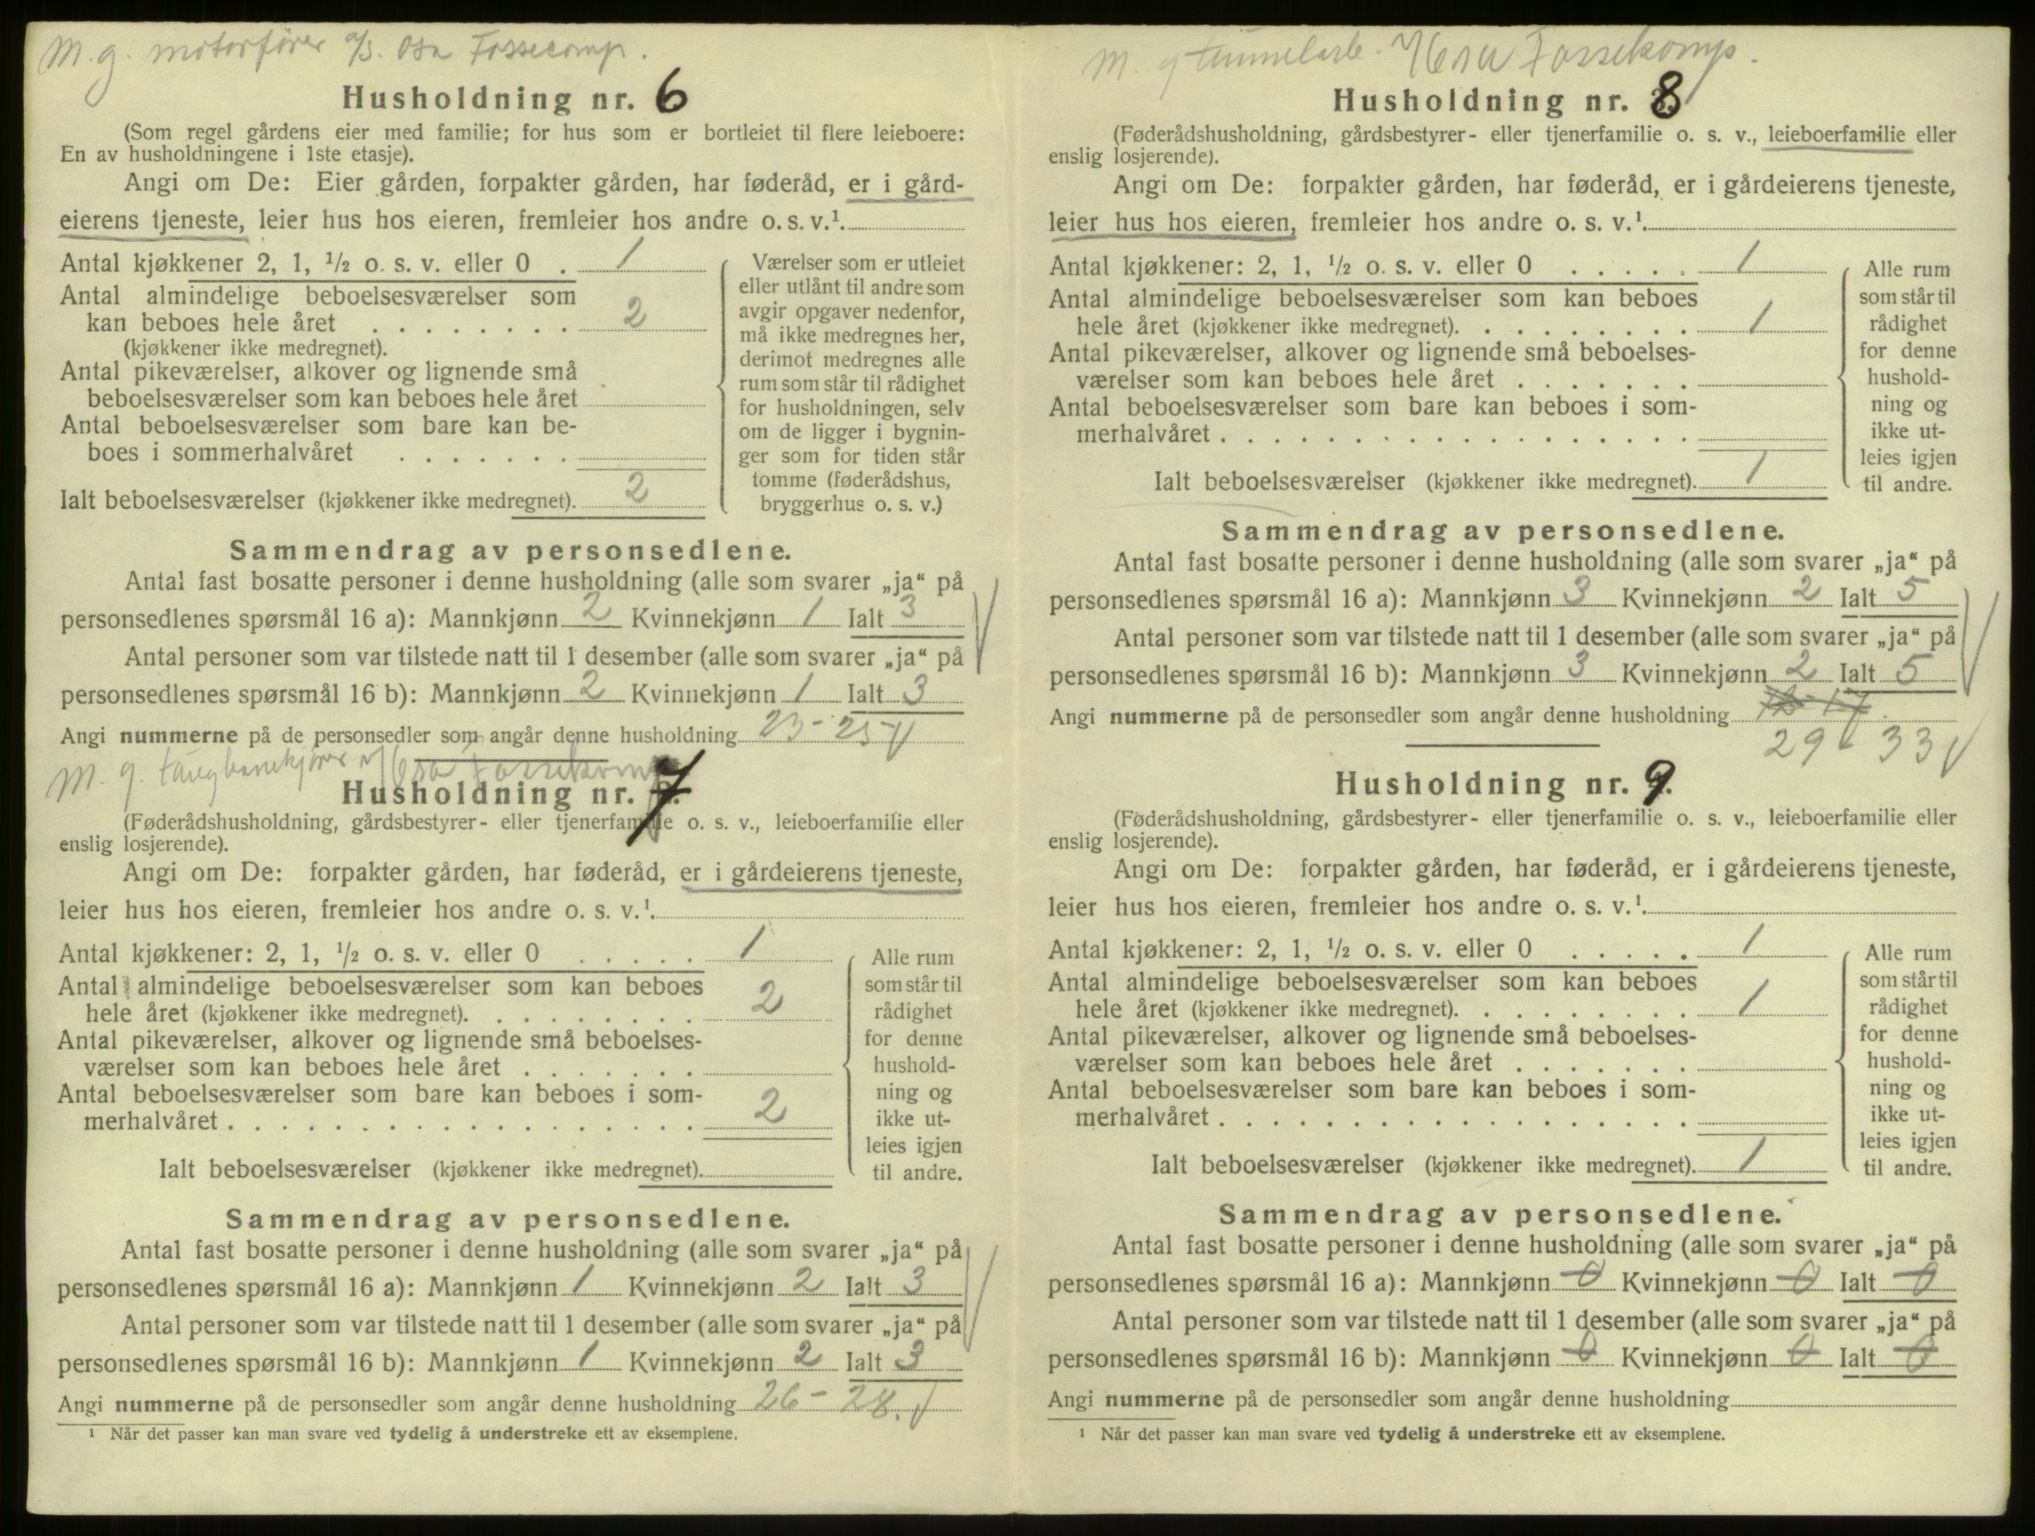 M. g. motorfører a/s. Osa Fossecomp.
Husholdning nr. 6
(Som regel gårdens eier med familie; for hus som er bortleiet til flere leieboere:
En av husholdningene i 1ste etasje).
Angi om De: Eier gården, forpakter gården, har føderåd, er i gård-
eierens tjeneste, leier hus hos eieren, fremleier hos andre o. s. v.¹.
Antal kjøkkener 2, 1, ½ o. s. v. eller 0 . 1
Antal almindelige beboelsesværelser som
kan beboes hele året . . . . . . . . 2
(kjøkkener ikke medregnet).
Antal pikeværelser, alkover og lignende små
beboelsesværelser som kan beboes hele året
Antal beboelsesværelser som bare kan be-
boes i sommerhalvåret . . . . . . .
Ialt beboelsesværelser (kjøkkener ikke medregnet). 2
Værelser som er utleiet
eller utlånt til andre som
avgir opgaver nedenfor,
må ikke medregnes her,
derimot medregnes alle
rum som står til rådighet
for husholdningen, selv
om de ligger i bygnin-
ger som for tiden står
tomme (føderådshus,
bryggerhus o. s. v.)
Sammendrag av personsedlene.
Antal fast bosatte personer i denne husholdning (alle som svarer „ja“ på
personsedlenes spørsmål 16 a): Mannkjønn 2 Kvinnekjønn 1 Ialt 3
Antal personer som var tilstede natt til 1 desember (alle som svarer „ja“ på
personsedlenes spørsmål 16 b): Mannkjønn 2 Kvinnekjønn 1 Ialt 3
Angi nummerne på de personsedler som angår denne husholdning 23-25
M. g. taugbanekjører Fossekomp
Husholdning nr. 7
(Føderådshusholdning, gårdsbestyrer- eller tjenerfamilie o. s. v., leieboerfamilie eller
enslig losjerende).
Angi om De: forpakter gården, har føderåd, er i gårdeierens tjeneste,
leier hus hos eieren, fremleier hos andre o. s. v.¹.
Antal kjøkkener: 2, 1, ½ o. s. v. eller 0 . . . . . 1
Antal almindelige beboelsesværelser som kan beboes
hele året (kjøkkener ikke medregnet). . . . . . . . . 2
Antal pikeværelser, alkover og lignende små beboelses-
værelser som kan beboes hele året . . . . . . .
Antal beboelsesværelser som bare kan beboes i som-
merhalvåret . . . . . . . . . . . . . . . . . . 2
Ialt beboelsesværelser (kjøkkener ikke medregnet).
Alle rum
som står til
rådighet
for denne
hushold-
ning og
ikke ut-
leies igjen
til andre.
Sammendrag av personsedlene.
Antal fast bosatte personer i denne husholdning (alle som svarer „ja“ på
personsedlenes spørsmål 16 a): Mannkjønn 1 Kvinnekjønn 2 Ialt 3
Antal personer som var tilstede natt til 1 desember (alle som svarer „ja“ på
personsedlenes spørsmål 16 b): Mannkjønn 1 Kvinnekjønn 2 Ialt 3
Angi nummerne på de personsedler som angår denne husholdning 26-28.
¹ Når det passer kan man svare ved tydelig å understreke ett av eksemplene.
M. g tunnelarb. Fossekomp.
Husholdning nr. 8
(Føderådshusholdning, gårdsbestyrer- eller tjenerfamilie o. s. v., leieboerfamilie eller
enslig losjerende).
Angi om De: forpakter gården, har føderåd, er i gårdeierens tjeneste,
leier hus hos eieren, fremleier hos andre o. s. v.¹.
Antal kjøkkener: 2, 1, ½ o. s. v. eller 0 . . . . . 1
Antal almindelige beboelsesværelser som kan beboes
hele året (kjøkkener ikke medregnet). . . . . . . . . 1
Antal pikeværelser, alkover og lignende små beboelses-
værelser som kan beboes hele året . . . . . . .
Antal beboelsesværelser som bare kan beboes i som-
merhalvåret . . . . . . . . . . . . . . . . . .
Ialt beboelsesværelser (kjøkkener ikke medregnet). 1
Alle rum
som står til
rådighet
for denne
hushold-
ning og
ikke ut-
leies igjen
til andre.
Sammendrag av personsedlene.
Antal fast bosatte personer i denne husholdning (alle som svarer „ja“ på
personsedlenes spørsmål 16 a): Mannkjønn 3 Kvinnekjønn 2 Ialt 5
Antal personer som var tilstede natt til 1 desember (alle som svarer „ja“ på
personsedlenes spørsmål 16 b): Mannkjønn 3 Kvinnekjønn 2 Ialt 5
Angi nummerne på de personsedler som angår denne husholdning
29-33
Husholdning nr. 9.
(Føderådshusholdning, gårdsbestyrer- eller tjenerfamilie o. s. v., leieboerfamilie eller
enslig losjerende).
Angi om De: forpakter gården, har føderåd, er i gårdeierens tjeneste,
leier hus hos eieren, fremleier hos andre o. s. v.¹.
Antal kjøkkener: 2, 1, ½ o. s. v. eller 0 . . . . . 1
Antal almindelige beboelsesværelser som kan beboes
hele året (kjøkkener ikke medregnet). . . . . . . . . 1
Antal pikeværelser, alkover og lignende små beboelses-
værelser som kan beboes hele året . . . . . . .
Antal beboelsesværelser som bare kan beboes i som-
merhalvåret . . . . . . . . . . . . . . . . . .
Ialt beboelsesværelser (kjøkkener ikke medregnet). 1
Alle rum
som står til
rådighet
for denne
hushold-
ning og
ikke ut-
leies igjen
til andre.
Sammendrag av personsedlene.
Antal fast bosatte personer i denne husholdning (alle som svarer „ja“ på
personsedlenes spørsmål 16 a): Mannkjønn 0 Kvinnekjønn 0 Ialt 0
Antal personer som var tilstede natt til 1 desember (alle som svarer „ja“ på
personsedlenes spørsmål 16 b): Mannkjønn 0 Kvinnekjønn 0 Ialt 0
Angi nummerne på de personsedler som angår denne husholdning
¹ Når det passer kan man svare ved tydelig å understreke ett av eksemplene.